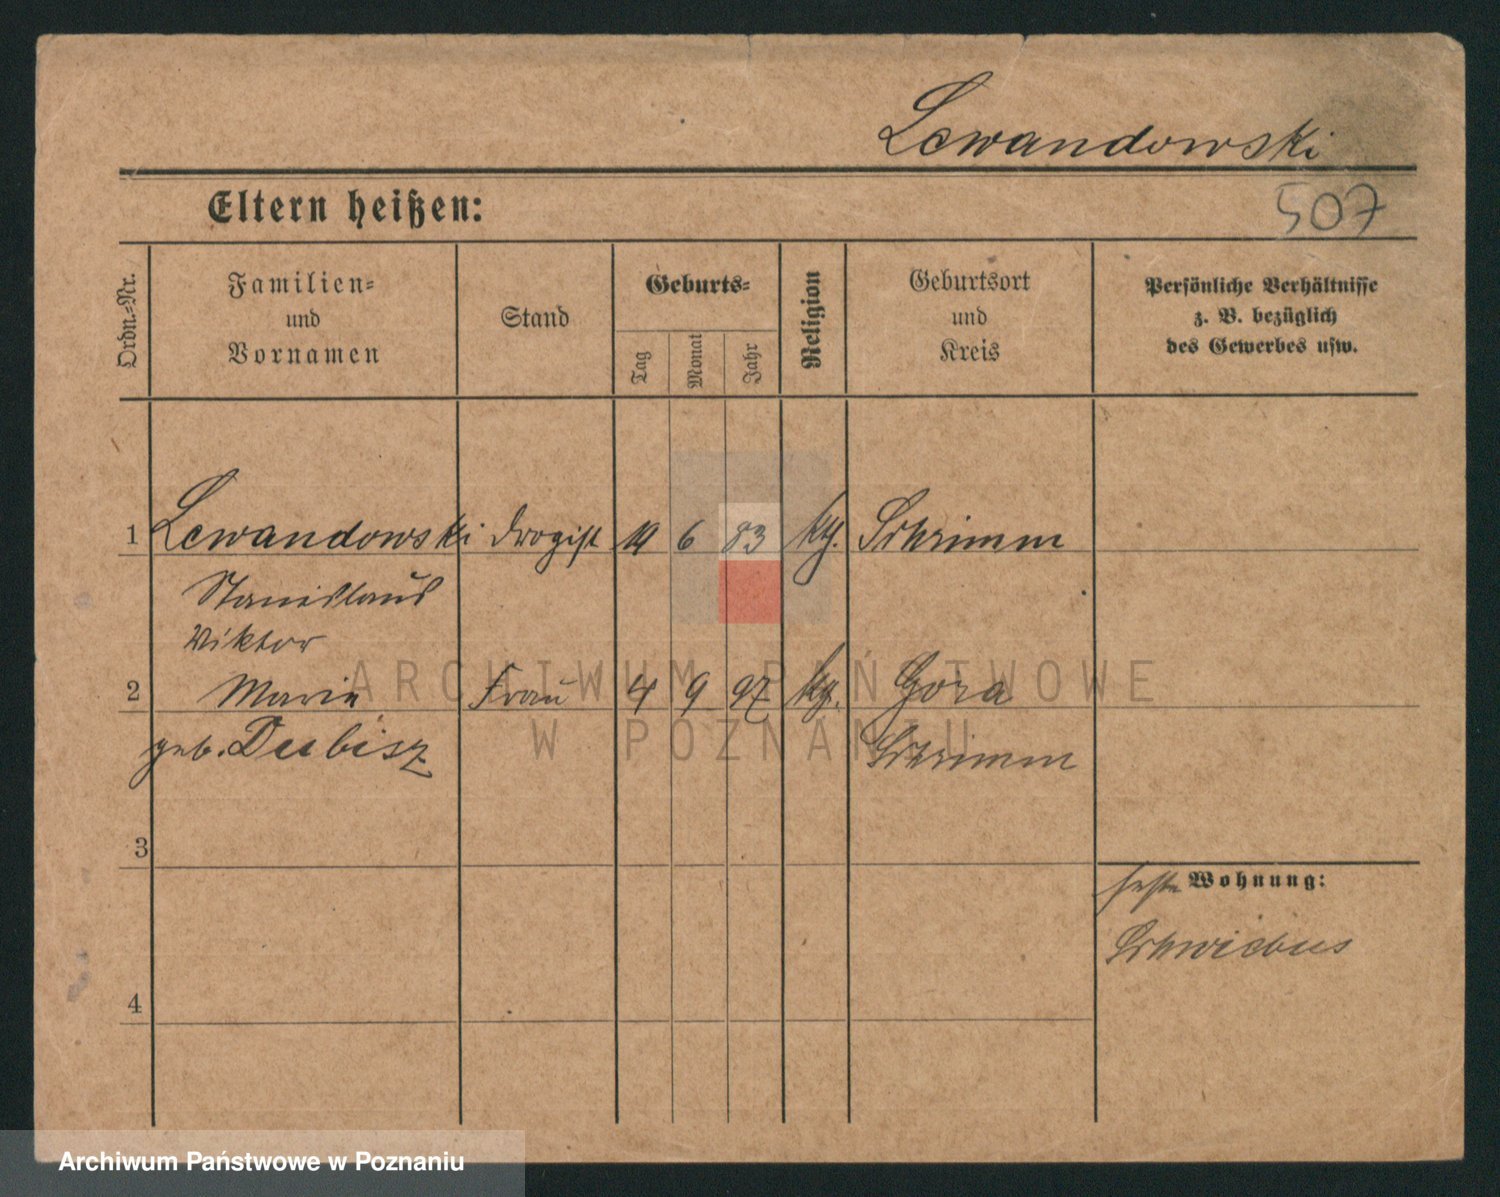 Lewandowski
Eltern heißen:
507
Ordn.-Nr.
Familien-
und
Vornamen
Stand
Geburts-
Tag
Monat
Jahr
Religion
Geburtsort
und
Kreis
Persönliche Verhältnisse
z. B. bezüglich
des Gewerbes usw.
1 Lewandowski Drogist 6 83 kth. Schrimm
Stanislaus
Viktor
2 Marie Frau 4 9 97 Gora
geb. Dubisz Schrimm
3
Wohnung:
Schwiebus
4
ARCHIWUM PAŃSTWOWE
W POZNANIU
Archiwum Państwowe w Poznaniu